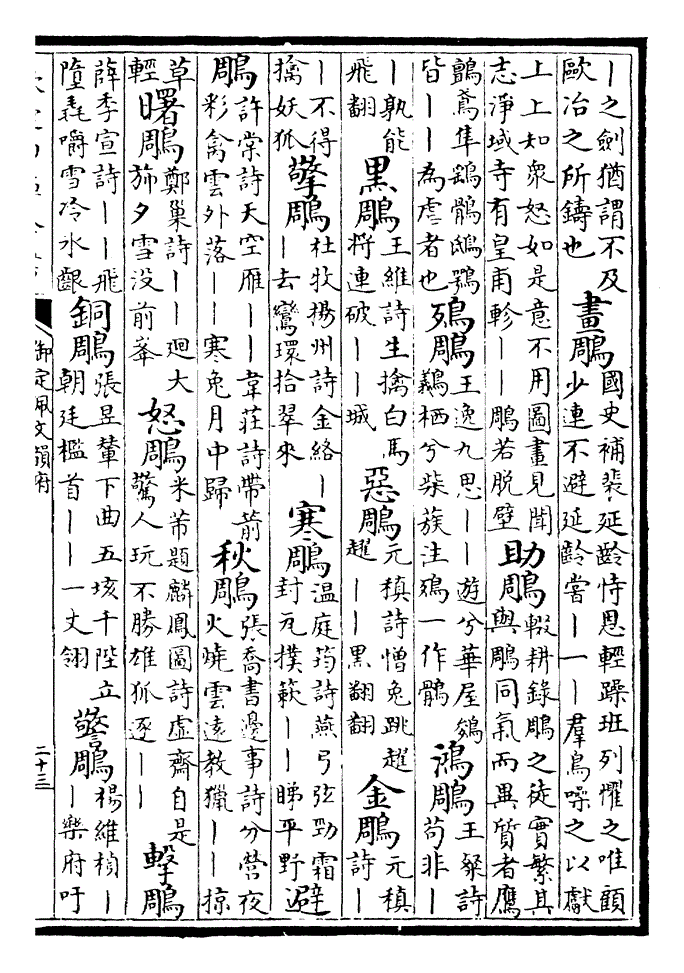 ｜之劍猶謂不及
歐冶之所鑄也
畫鵰
國史補裴延齡恃恩輕躁班列懼之唯顧
少連不避延齡嘗｜一｜羣鳥噪之以獻
上上知衆怒如是意不用圖畫見聞
志淨域寺有皇甫軫｜｜鵰若脫壁
助鵰
輟耕錄鵰之徒實繁其
與鵰同氣而異質者鷹
鸇鳶隼鷂鶻鴟鶚
皆｜｜為虐者也
鴉鵰
王逸九思｜｜遊兮華屋鵔
鸃栖兮柴蔟注鴉一作鶻
鴻鵰
王粲詩
苟非｜
｜孰能
飛翻
黑鵰
王維詩生擒白馬
將連破｜｜城
惡鵰
元稹詩憎兔跳趯
趯｜｜黑翻翻
金鵰
元稹
詩｜
｜不得
擒妖狐
擎鵰
杜牧揚州詩金絡｜
｜去鸞環拾翠來
寒鵰
溫庭筠詩燕弓弦勁霜
封瓦撲簌｜｜睇平野
避
鵰
許棠詩天空雁｜｜韋莊詩帶箭
彩禽雲外落｜｜寒兔月中歸
秋鵰
張喬書邊事詩分營夜
火燒雲遠教獵｜｜掠
草
輕
曙鵰
鄭巢詩｜｜廻大
旆夕雪没前峯
怒鵰
米芾題麟鳳圖詩虛齋自是
驚人玩不勝雄狐逐｜｜
擊鵰
薛季宣詩｜｜飛
墮毳嚼雪冷氷齦
銅鵰
張昱輦下曲五垓千陛立
朝廷檻首｜｜一丈翎
警鵰
楊維楨｜
｜樂府吁
御定佩文韻府
二十三